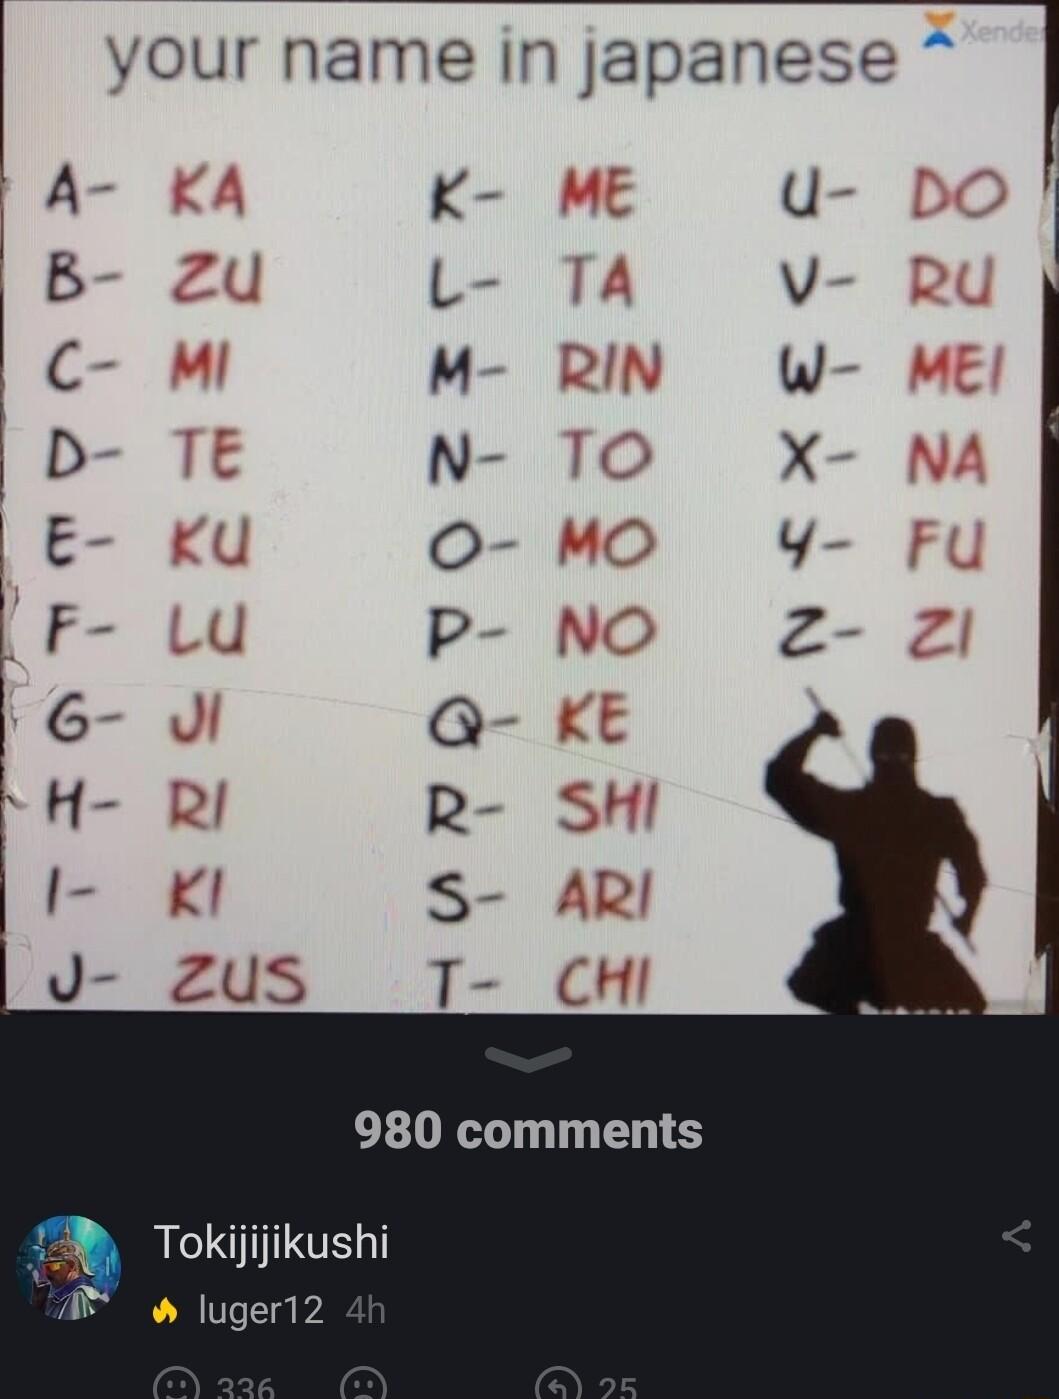 your name in japanese
Xender
A- KA
B- ZU
C- MI
D- TE
E- KU
F- LU
G- JI
H- RI
I- KI
J- ZUS
K- ME
L- TA
M- RIN
N- TO
O- MO
P- NO
Q- KE
R- SHI
S- ARI
T- CHI
U- DO
V- RU
W- MEI
X- NA
Y- FU
Z- ZI
980 comments
Tokijijijikushi
luger12 4h
336 25